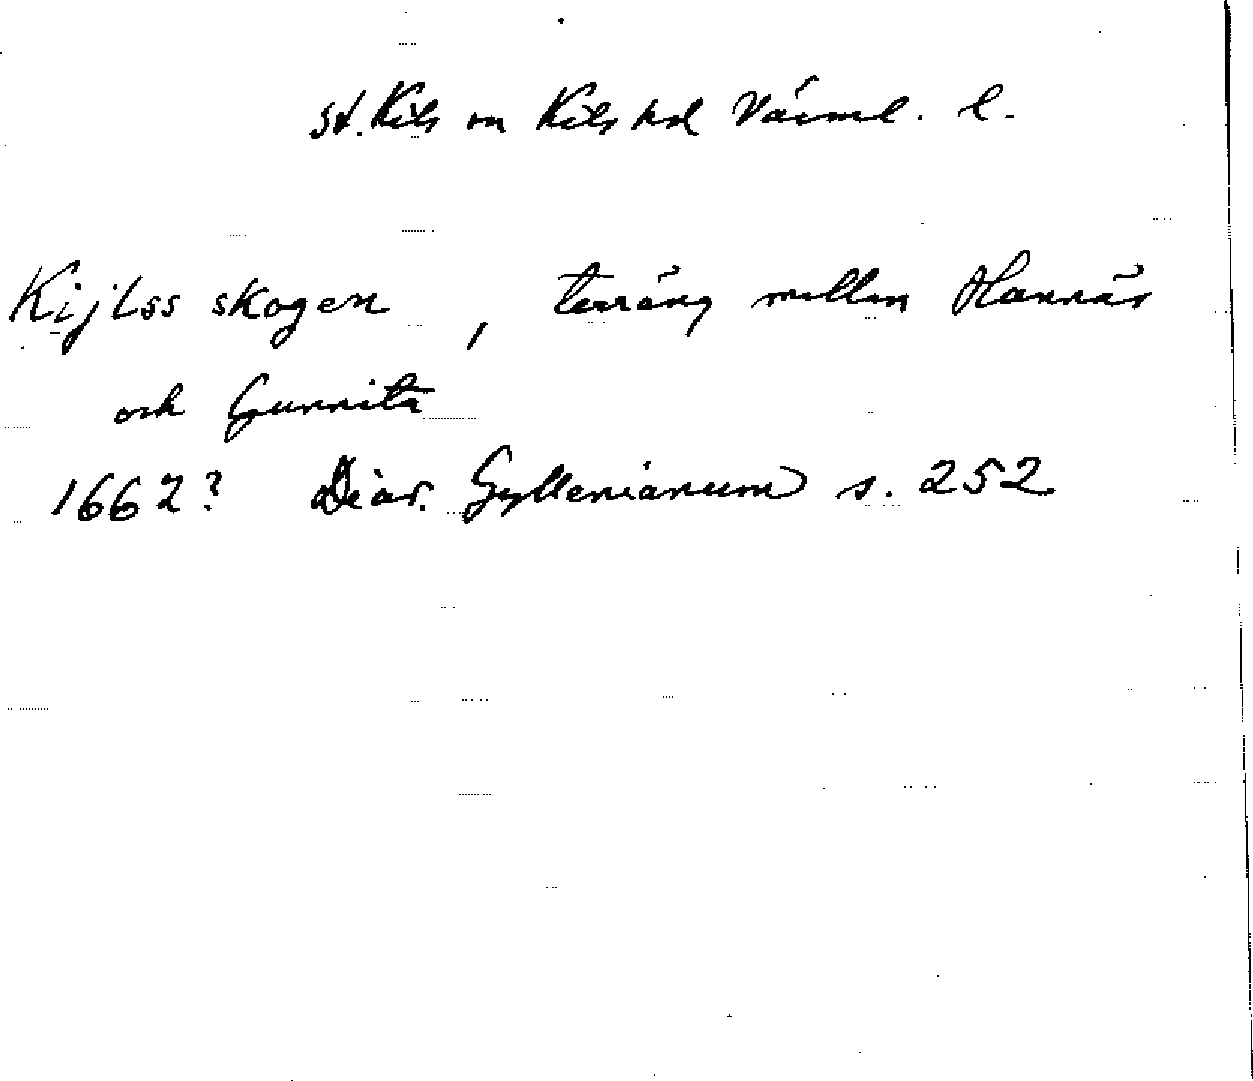 St. Kils sn Kils hd Värml. l.
Kijlss skogen, terräng mellan Hannäs
och Gunnita
1662? Diar. Gyllenianum s. 252